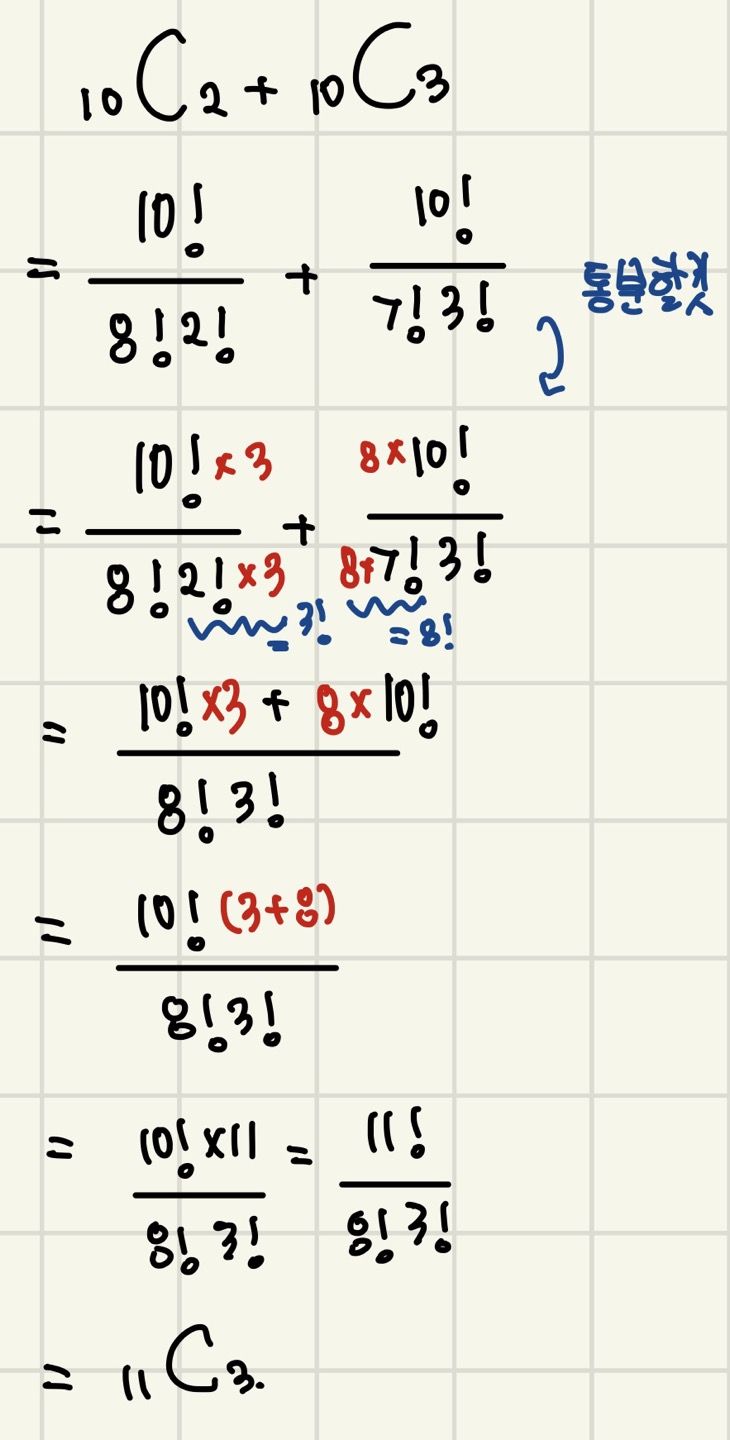 ₁₀C₂ + ₁₀C₃
= 10!/8!2! + 10!/7!3! 통분할것
= 10!×3/8!2!×3 + 8×10!/8×7!3!
=3! =8!
= 10!×3 + 8×10!/8!3!
= 10!(3+8)/8!3!
= 10!×11/8!3! = 11!/8!3!
= ₁₁C₃.